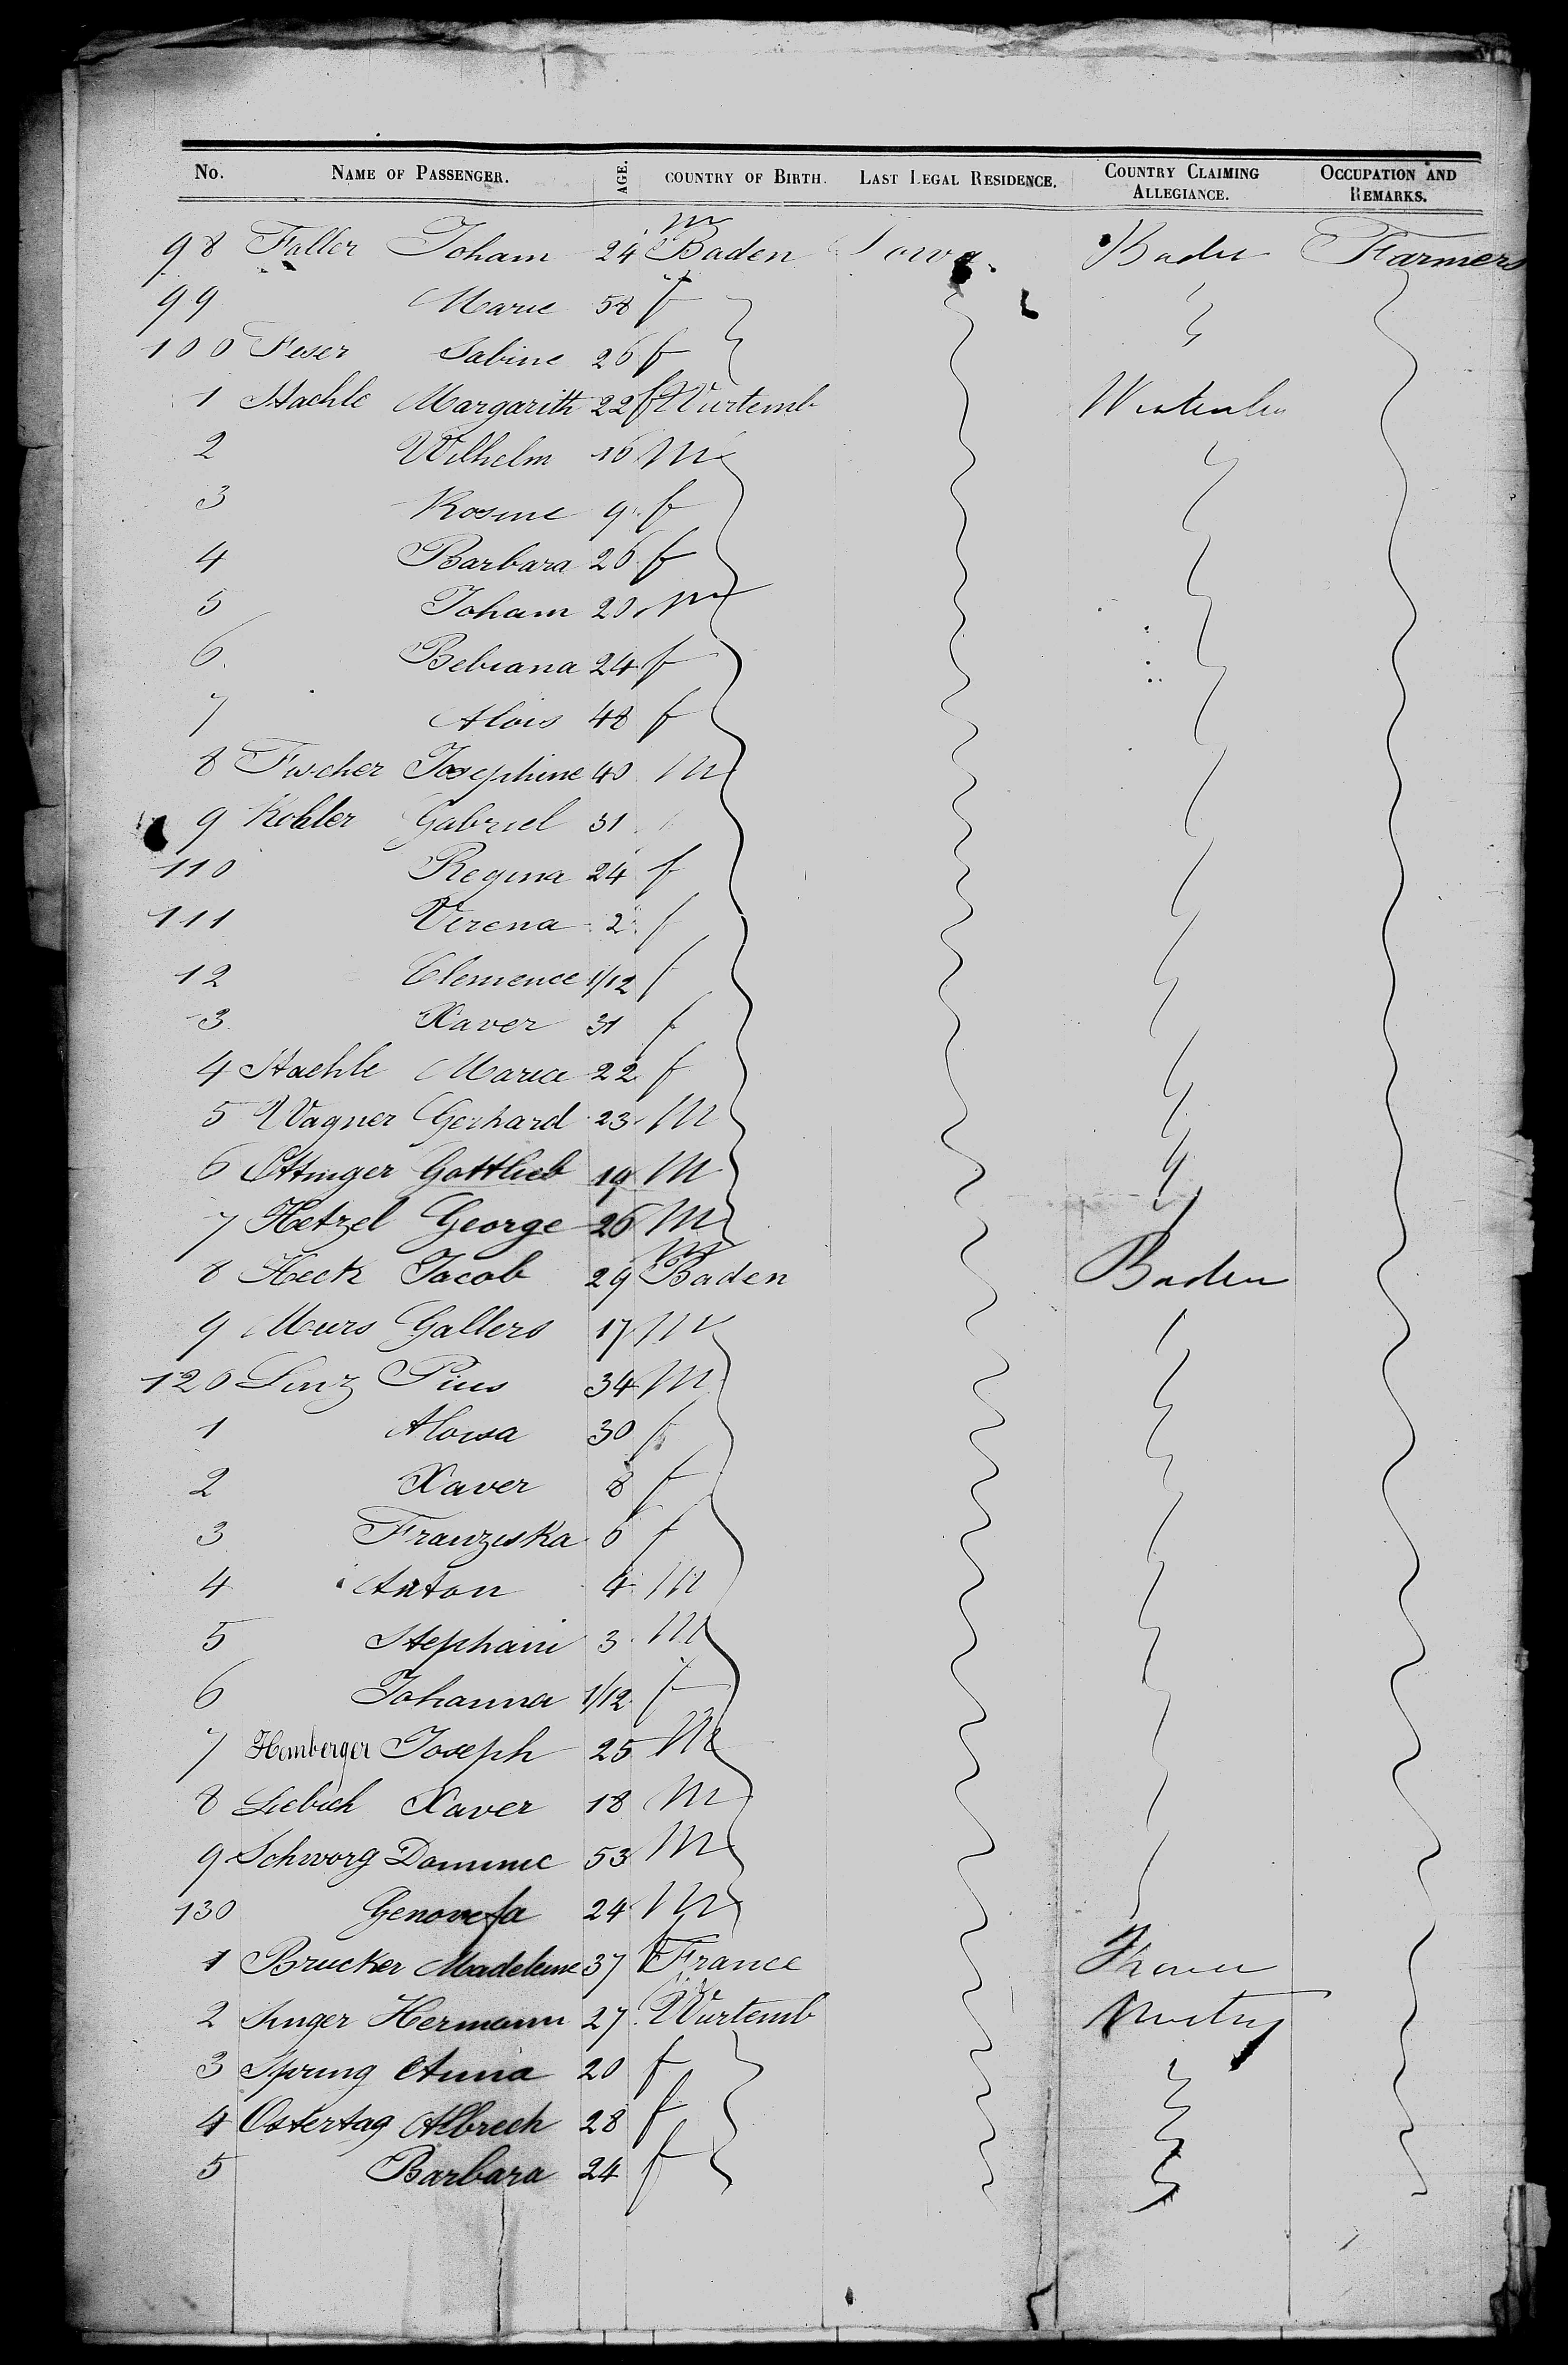 No. NAME OF PASSENGER. AGE. COUNTRY OF BIRTH. LAST LEGAL RESIDENCE. COUNTRY CLAIMING ALLEGIANCE. OCCUPATION AND REMARKS.
98 Faller Joham 24 m Baden Iowa. Baden Farmers
99 Marie 58 f
100 Feser Sabine 26 f
1 Haehle Margarith 22 f Würtemb
2 Wilhelm 16 m
3 Rosine 9 f
4 Barbara 26 f
5 Joham 20 m
6 Bebiana 24 f
7 Alois 48 f
8 Fischer Josephine 40 m
9 Kohler Gabriel 31
110 Regina 24 f
111 Verena 2 f
12 Clemence 1/12 f
3 Xaver 31 f
4 Haehle Maria 22 f
5 Wagner Gerhard 23 m
6 Ettinger Gottlieb 19 m
7 Hetzel George 26 m
8 Heck Jacob 29 m Baden Baden
9 Murs Gallers 17 m
120 Linz Pius 34 m
1 Aloisa 30 f
2 Xaver 8 f
3 Franziska 6 f
4 Anton 4 m
5 Stephani 3 m
6 Johanna 1/12 f
7 Homberger Joseph 25 m
8 Liebich Xaver 18 m
9 Schworg Dominic 53 m
130 Genovefa 24 m
1 Brucker Madeleine 37 f France
2 Singer Hermann 27 m Würtemb
3 Spring Anna 20 f
4 Ostertag Albrech 28 f
5 Barbara 24 f